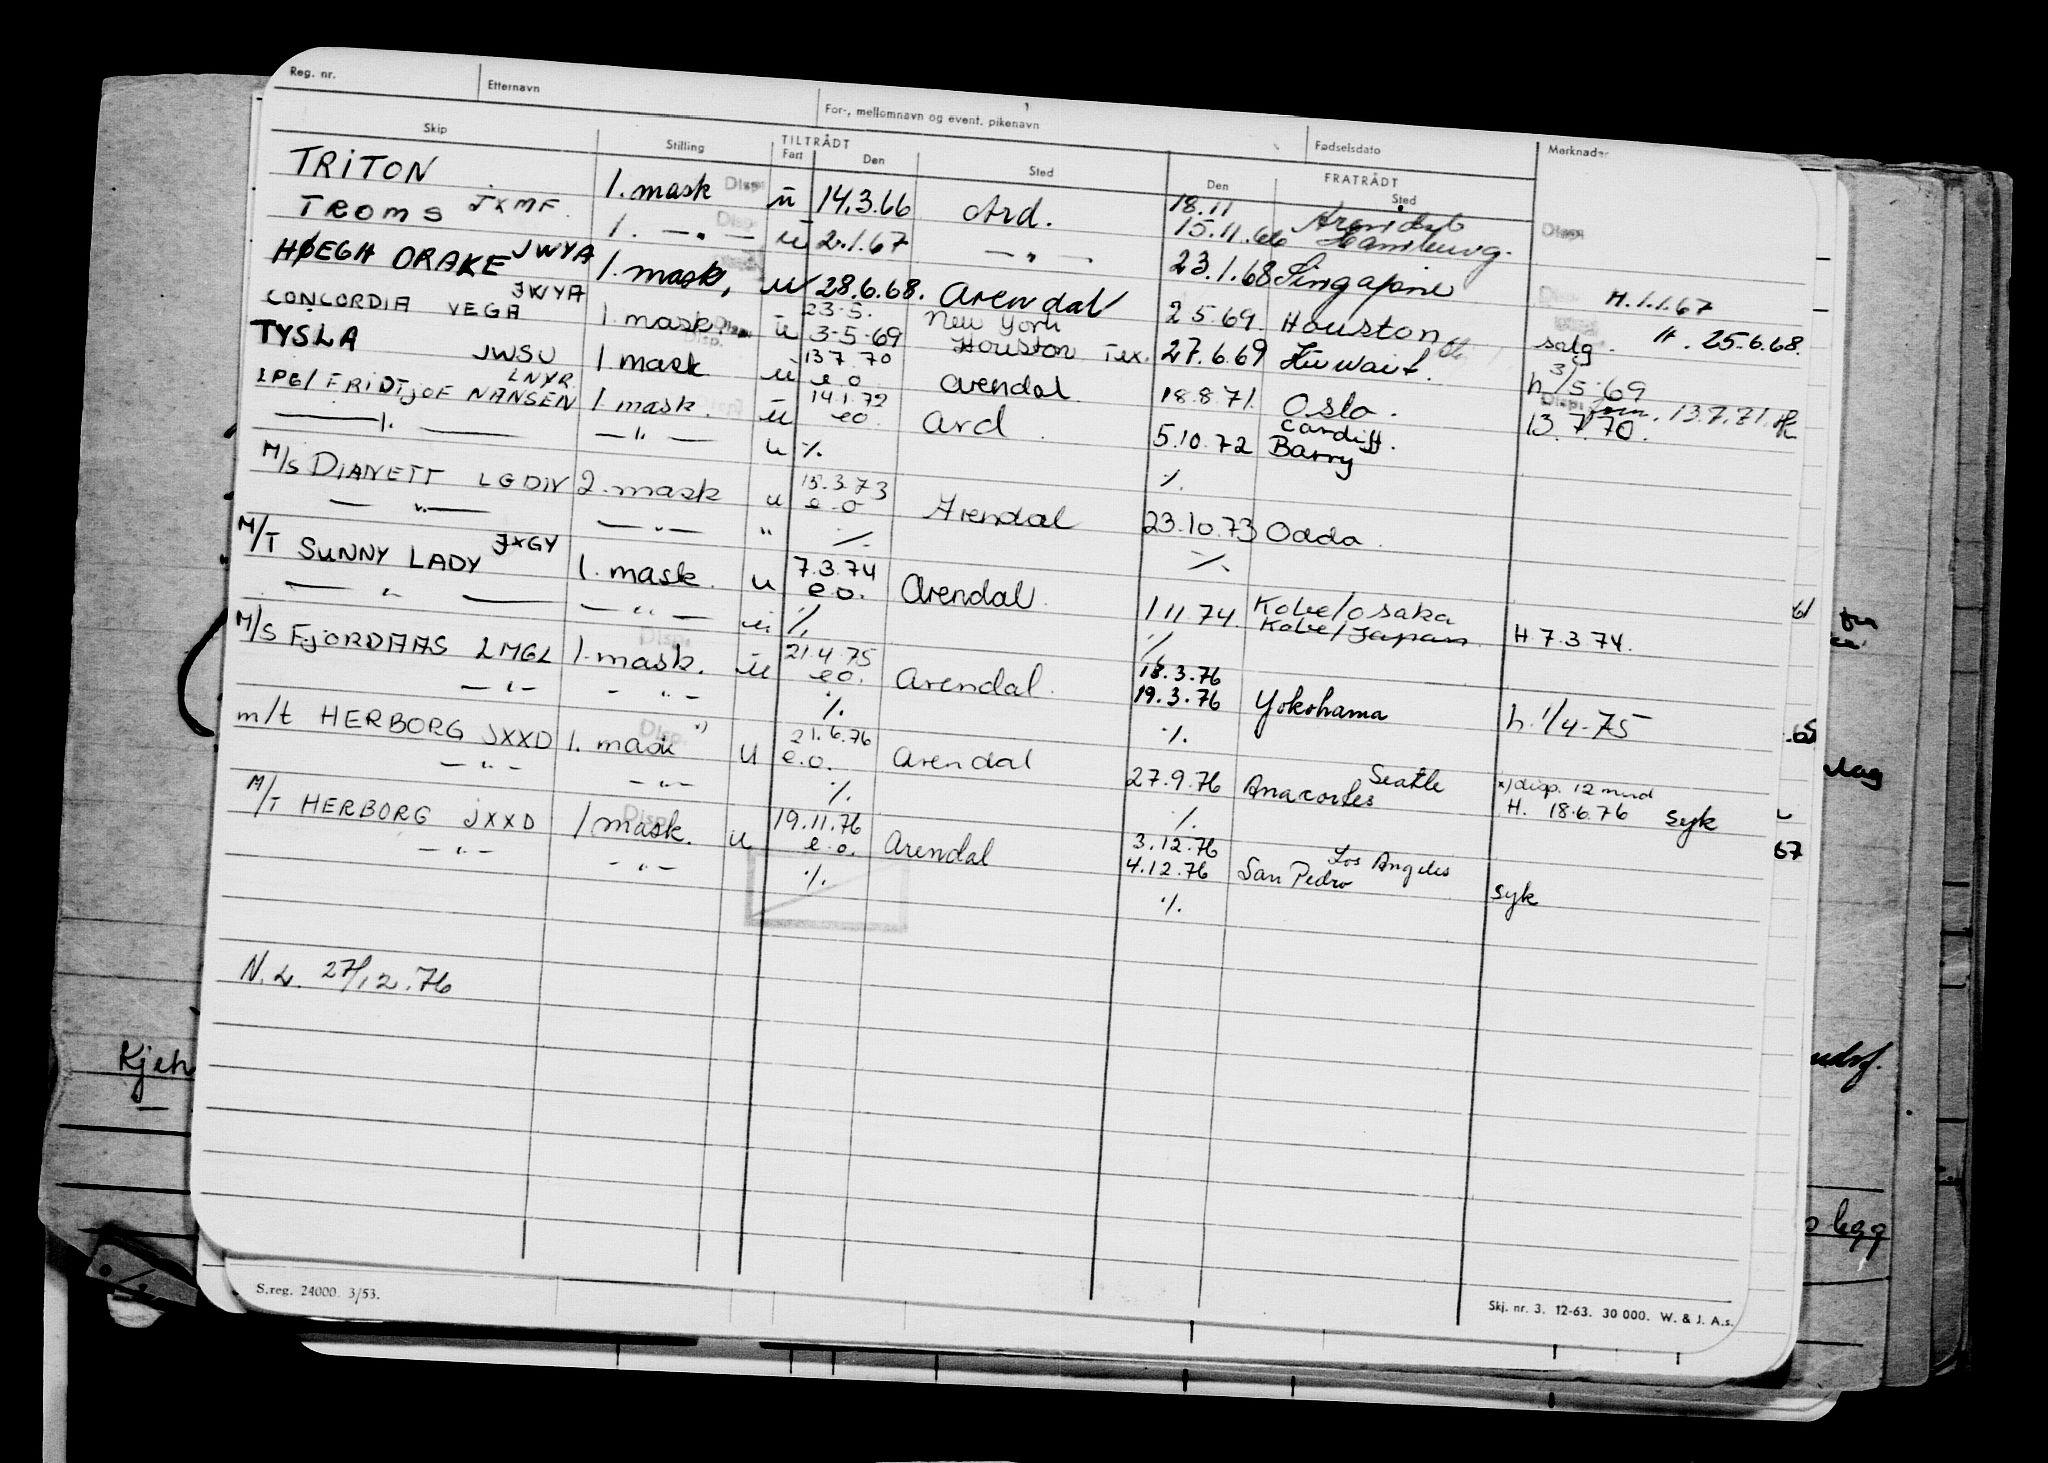 Reg. nr. Etternavn For-, mellomnavn og event. pikenavn Fødselsdato Merknader
Skip Stilling TILTRÅDT Fart Den Sted FRATRÅDT Den Sted
TRITON 1. mask Disp. u 14.3.66 Ard. 18.11 15.11.66 Arendal Hamburg.
TROMS JXMF. 1. —„— Disp. u 2.1.67 —„— 23.1.68 Singapore H.1.1.67
HØEGH DRAKE JWYA 1. mask, u 28.6.68. Arendal 2.5.69. Houston salg. H. 25.6.68.
CONCORDIA VEGA JWYA 1. mask. Disp. u 23.5. 3-5-69 New York Houston Tex. 27.6.69 Kuwait. h 3/5-69
TYSLA JWSU 1 mask u 13.7.70 e.o. Arendal 18.8.71. Oslo. 13.7.70. 13.7.71.
LPG/ FRIDTJOF NANSEN LNYR 1 mask. u 14.1.72 e.o. Ard. 5.10.72 Cardiff. Barry
—„— —„— u ٪ ٪
M/S DIANETT LGDN 2. mask u 15.3.73 e.o Arendal 23.10.73 Odda.
—„— —„— „ ٪ ٪
M/T SUNNY LADY JXGY 1. mask. u 7.3.74 e.o. Arendal. 1.11.74. Kobe/Osaka Kobe/Japan H 7.3.74.
—„— —„— u ٪ ٪
M/S FJORDAAS LMGL 1. mask. Disp. u 21.4.75 e.o. Arendal. 18.3.76 19.3.76 Yokohama h. 1/4-75
—„— —„— ٪ ٪
m/t HERBORG JXXD 1. mask x) Disp. u 21.6.76 e.o. Arendal 27.9.76 Seattle Anacortes x) disp. 12 mnd H. 18.6.76 syk
—„— —„— ٪ ٪
M/T HERBORG JXXD 1 mask. Disp. u 19.11.76 e.o. Arendal 3.12.76 4.12.76 Los Angeles San Pedro syk
—„— —„— ٪ ٪
N.L. 27/12.76
Kjeh
legg
S.reg. 24000. 3/53. Skj. nr. 3. 12-63. 30 000. W. & J. A.s.